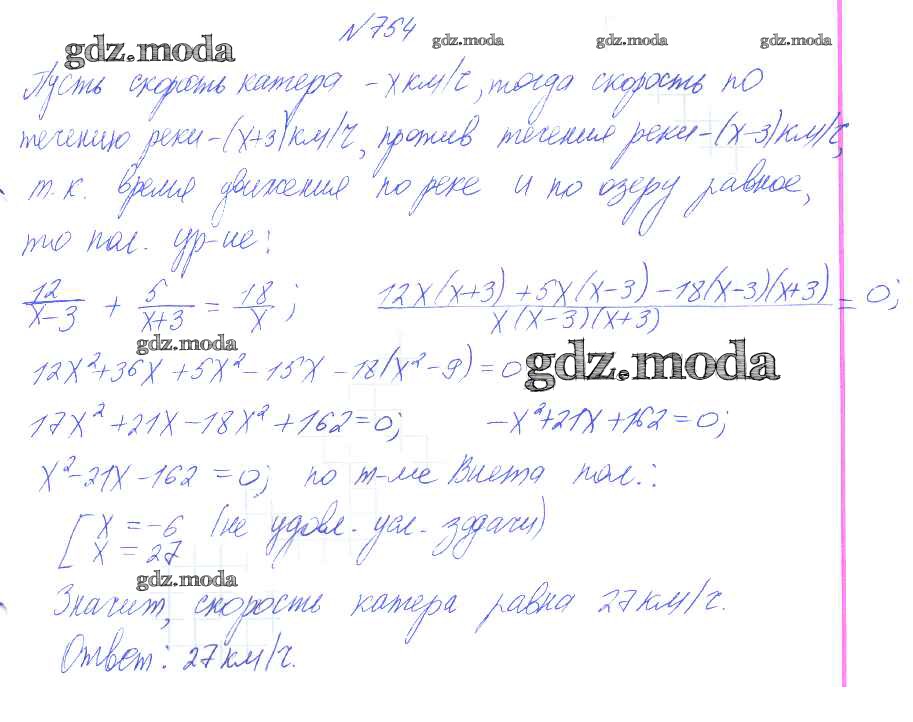 №754
gdz.moda gdz.moda gdz.moda gdz.moda
Пусть скорость катера - х км/ч, тогда скорость по
течению реки - (х+3) км/ч, против течения реки - (х-3) км/ч,
т.к. время движения по реке и по озеру равное,
то пол. ур-ие:
12/(х-3) + 5/(х+3) = 18/х; (12х(х+3)+5х(х-3)-18(х-3)(х+3))/(х(х-3)(х+3)) = 0;
gdz.moda
12х²+36х+5х²-15х-18(х²-9)=0 gdz.moda
17х²+21х-18х²+162=0; -х²+21х+162=0;
х²-21х-162=0; по т-ме Виета пол.:
[х=-6 (не удовл. усл. задачи)
х=27
gdz.moda
Значит, скорость катера равна 27 км/ч.
Ответ: 27 км/ч.